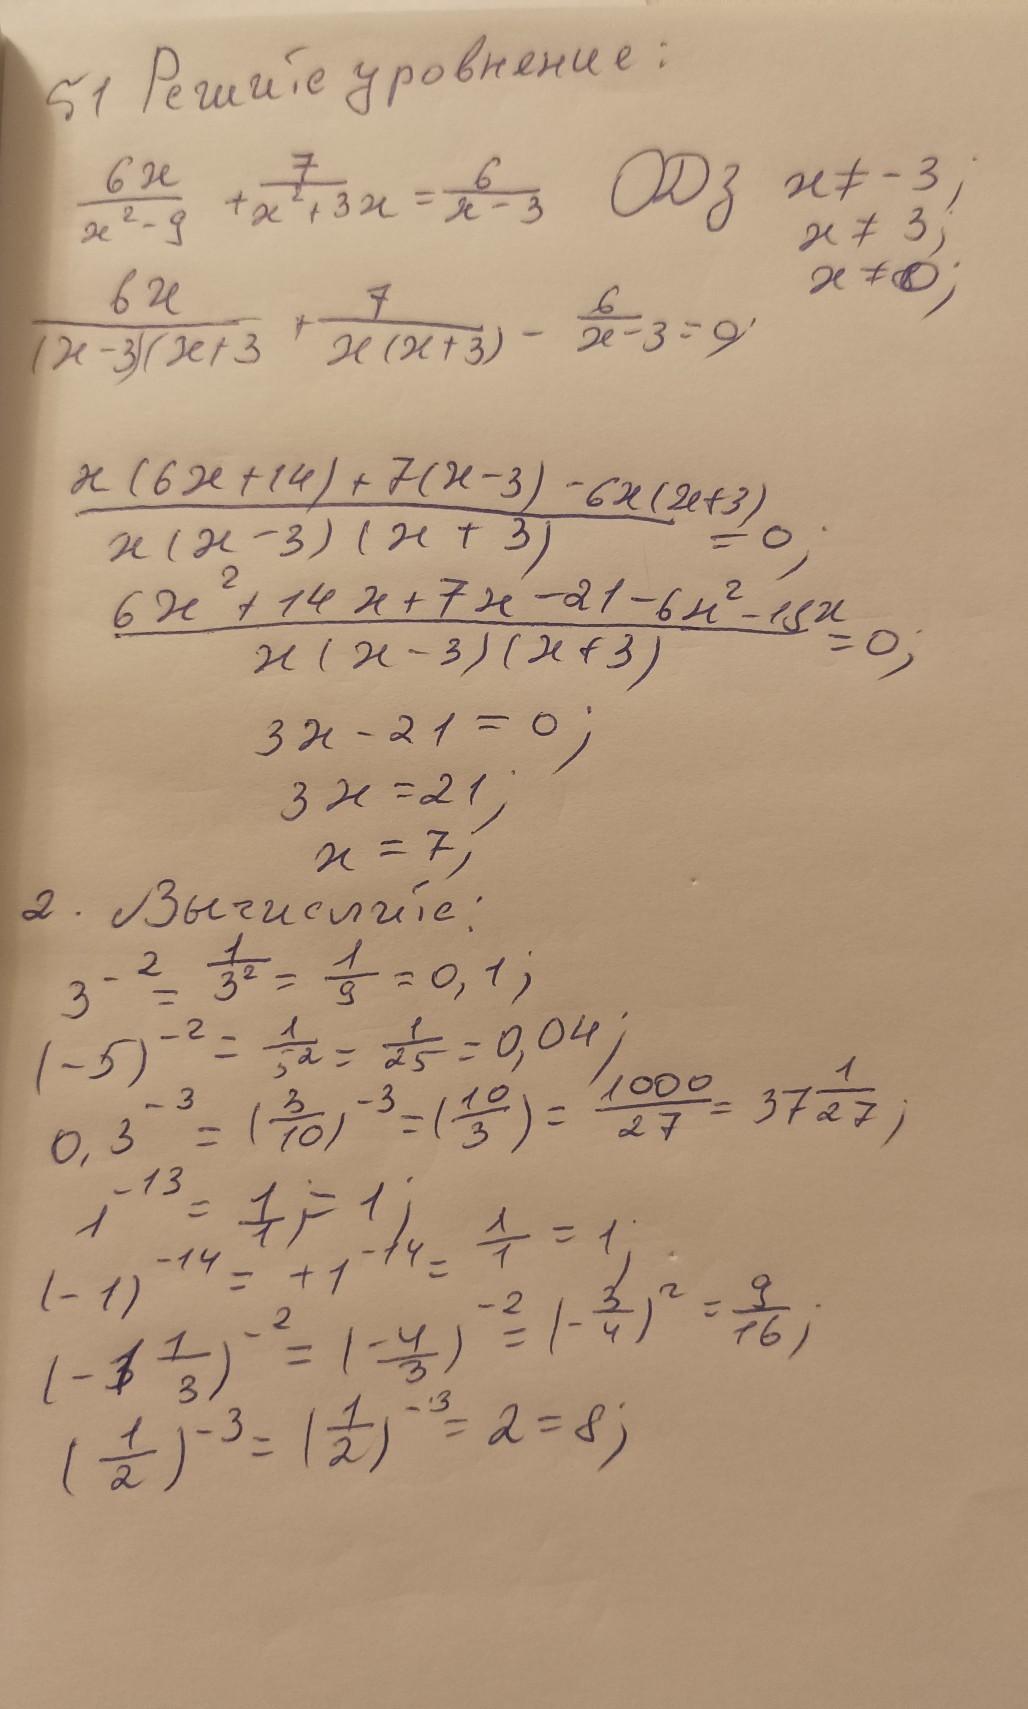 §1 Решите уровнение:
6x/(x²-9) + 7/(x²+3x) = 6/(x-3) ОДЗ x ≠ -3;
x ≠ 3;
x ≠ 0;
6x/((x-3)(x+3) + 7/(x(x+3)) - 6/(x-3) = 0;
(x(6x+14)+7(x-3)-6x(x+3))/(x(x-3)(x+3)) = 0;
(6x²+14x+7x-21-6x²-18x)/(x(x-3)(x+3)) = 0;
3x-21=0;
3x=21;
x=7;
2. Вычислите:
3⁻² = 1/3² = 1/9 = 0,1;
(-5)⁻² = 1/5² = 1/25 = 0,04;
0,3⁻³ = (3/10)⁻³ = (10/3) = 1000/27 = 37 1/27;
1⁻¹³ = 1/1 = 1;
(-1)⁻¹⁴ = +1⁻¹⁴ = 1/1 = 1;
(-1 1/3)⁻² = (-4/3)⁻² = (-3/4)² = 9/16;
(1/2)⁻³ = (1/2)⁻³ = 2 = 8;